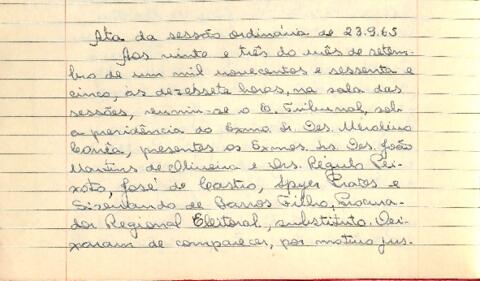 Ata da sessão ordinária de 23.9.65
Aos vinte e três do mês de setem-
bro de um mil novecentos e sessenta e
cinco, às dezessete horas, na sala das
sessões, reuniu-se o E. Tribunal, sob
a presidência do Exmo. Sr. Des. Merolino
Corrêa, presentes os Exmos. Srs. Des. João
Martins de Oliveira e Drs. Régulo Pei-
xoto, José de Castro, Spyer Prates e
Sizenando de Barros Filho, Procura-
dor Regional Eleitoral, substituto. Dei-
xaram de comparecer, por motivo jus-